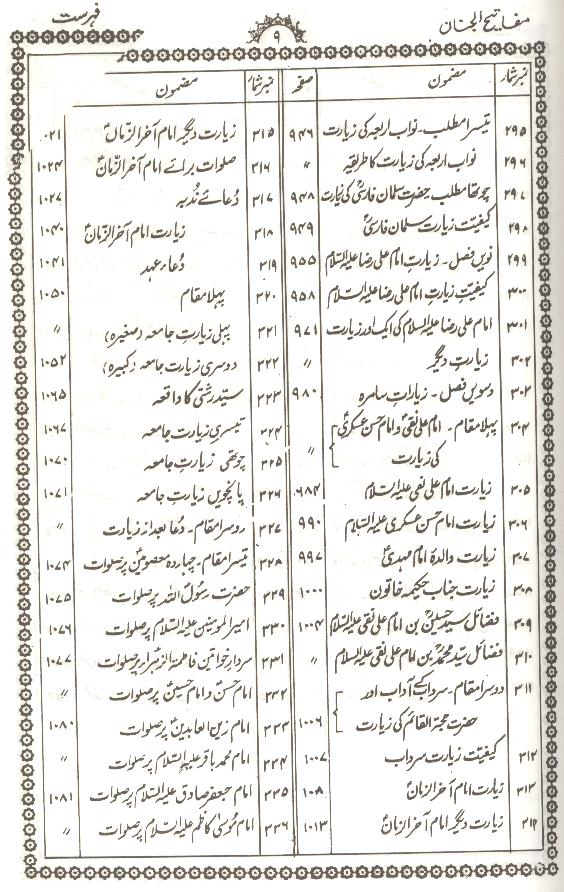 مفاتیح الجنان
۹
فہرست
نمبر شمار مضمون صفحہ
۲۹۵ تیسرا مطلب۔ نواب اربعہ کی زیارت ۹۴۶
۲۹۶ نواب اربعہ کی زیارت کا طریقہ 〃
۲۹۷ چوتھا مطلب حضرت سلمان فارسیؓ کی زیارت ۹۴۸
۲۹۸ کیفیت زیارت سلمان فارسیؓ ۹۴۹
۲۹۹ نویں فصل۔ زیارت امام علی رضا علیہ السلام ۹۵۵
۳۰۰ کیفیت زیارت امام علی رضا علیہ السلام ۹۵۸
۳۰۱ امام علی رضا علیہ السلام کی ایک اور زیارت ۹۷۱
۳۰۲ زیارت دیگر 〃
۳۰۳ دسویں فصل۔ زیارات سامرہ ۹۸۰
۳۰۴ پہلا مقام۔ امام علی نقیؑ و امام حسن عسکریؑ
کی زیارت 〃
۳۰۵ زیارت امام علی نقی علیہ السلام ۶۸۴
۳۰۶ زیارت امام حسن عسکری علیہ السلام ۹۹۰
۳۰۷ زیارت والدہ امام مہدیؑ ۹۹۷
۳۰۸ زیارت جناب حکیمہ خاتون ۱۰۰۰
۳۰۹ فضائل سید حسینؒ بن امام علی نقی علیہ السلام ۱۰۰۴
۳۱۰ فضائل سید محمدؒ بن امام علی نقی علیہ السلام 〃
۳۱۱ دوسرا مقام۔ سرداب کے آداب اور
حضرت حجۃ القائمؑ کی زیارت ۱۰۰۶
۳۱۲ کیفیت زیارت سرداب ۱۰۰۷
۳۱۳ زیارت امام آخر الزمانؑ ۱۰۰۸
۳۱۴ زیارت دیگر امام آخر الزمانؑ ۱۰۱۳
نمبر شمار مضمون
۳۱۵ زیارت دیگر امام آخر الزمانؑ ۰۲۱
۳۱۶ صلوات برائے امام آخر الزمانؑ ۱۰۲۴
۳۱۷ دعائے ندبہ ۱۰۲۷
۳۱۸ زیارت امام آخر الزمانؑ ۱۰۴۰
۳۱۹ دعاء عہد ۱۰۴۱
۳۲۰ پہلا مقام ۱۰۵۰
۳۲۱ پہلی زیارت جامعہ (صغیرہ) 〃
۳۲۲ دوسری زیارت جامعہ (کبیرہ) ۱۰۵۲
۳۲۳ سید رشتی کا واقعہ ۱۰۶۵
۳۲۴ تیسری زیارت جامعہ ۱۰۶۷
۳۲۵ چوتھی زیارت جامعہ ۱۰۷۰
۳۲۶ پانچویں زیارت جامعہ ۱۰۷۱
۳۲۷ دوسرا مقام۔ دعا بعد از زیارت 〃
۳۲۸ تیسرا مقام۔ چہاردہ معصومینؑ پر صلوات ۱۰۷۴
۳۲۹ حضرت رسولؐ اللہ پر صلوات ۱۰۷۵
۳۳۰ امیر المومنین علیہ السلام پر صلوات ۱۰۷۶
۳۳۱ سردار خواتین فاطمۃ الزہراؑ پر صلوات ۱۰۷۷
۳۳۲ امام حسنؑ و امام حسینؑ پر صلوات 〃
۳۳۳ امام زین العابدینؑ پر صلوات ۱۰۸۰
۳۳۴ امام محمد باقر علیہ السلام پر صلوات 〃
۳۳۵ امام جعفر صادق علیہ السلام پر صلوات ۱۰۸۱
۳۳۶ امام موسیٰ کاظم علیہ السلام پر صلوات 〃